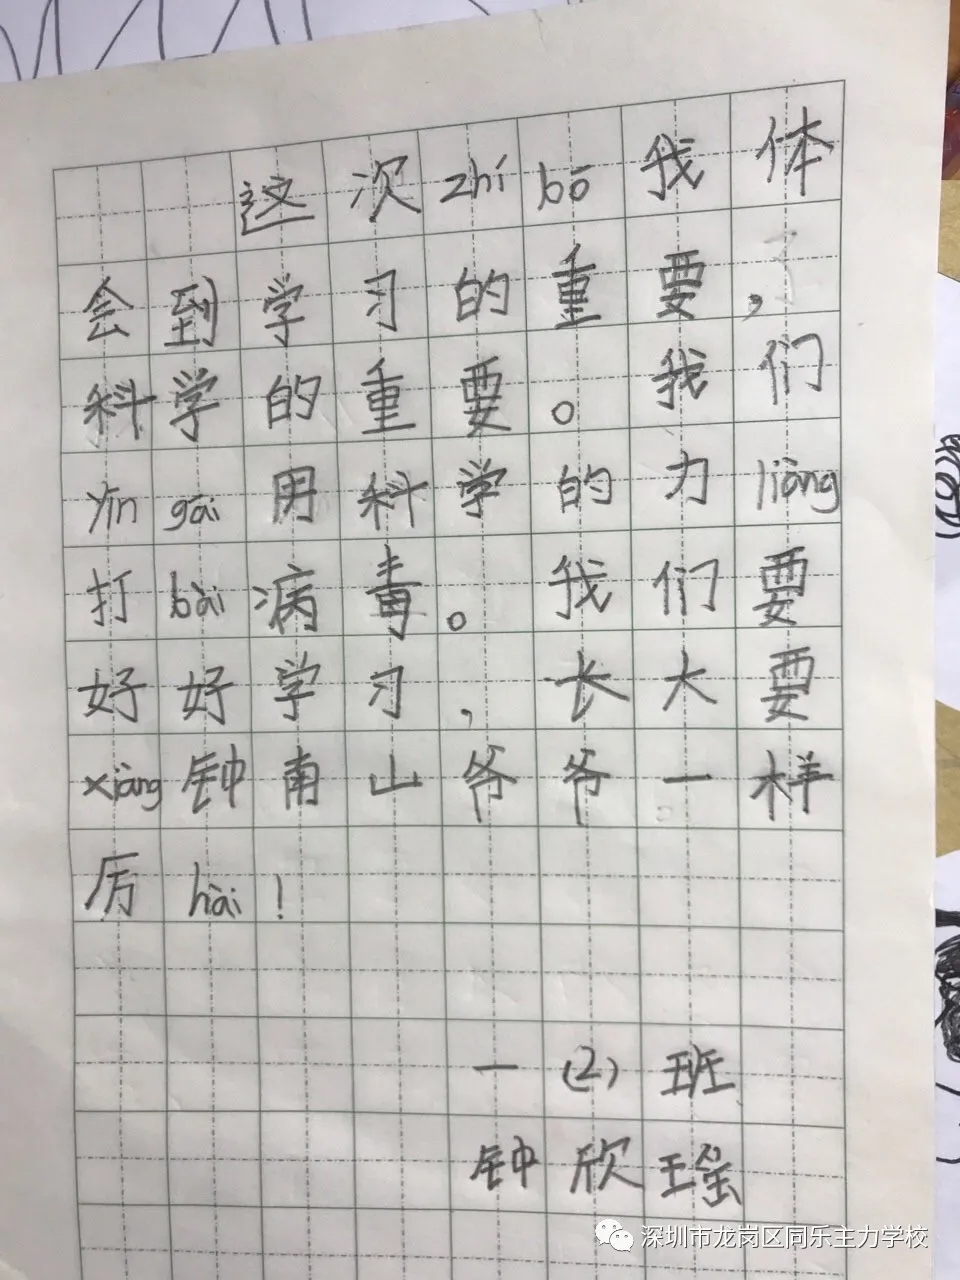 这次zhí bō我体
会到学习的重要，
科学的重要。我们
yīn gāi用科学的力liàng
打bài病毒。我们要
好好学习，长大要
xiàng钟南山爷爷一样
厉hài！
一（2）班
钟欣瑶
深圳市龙岗区同乐主力学校